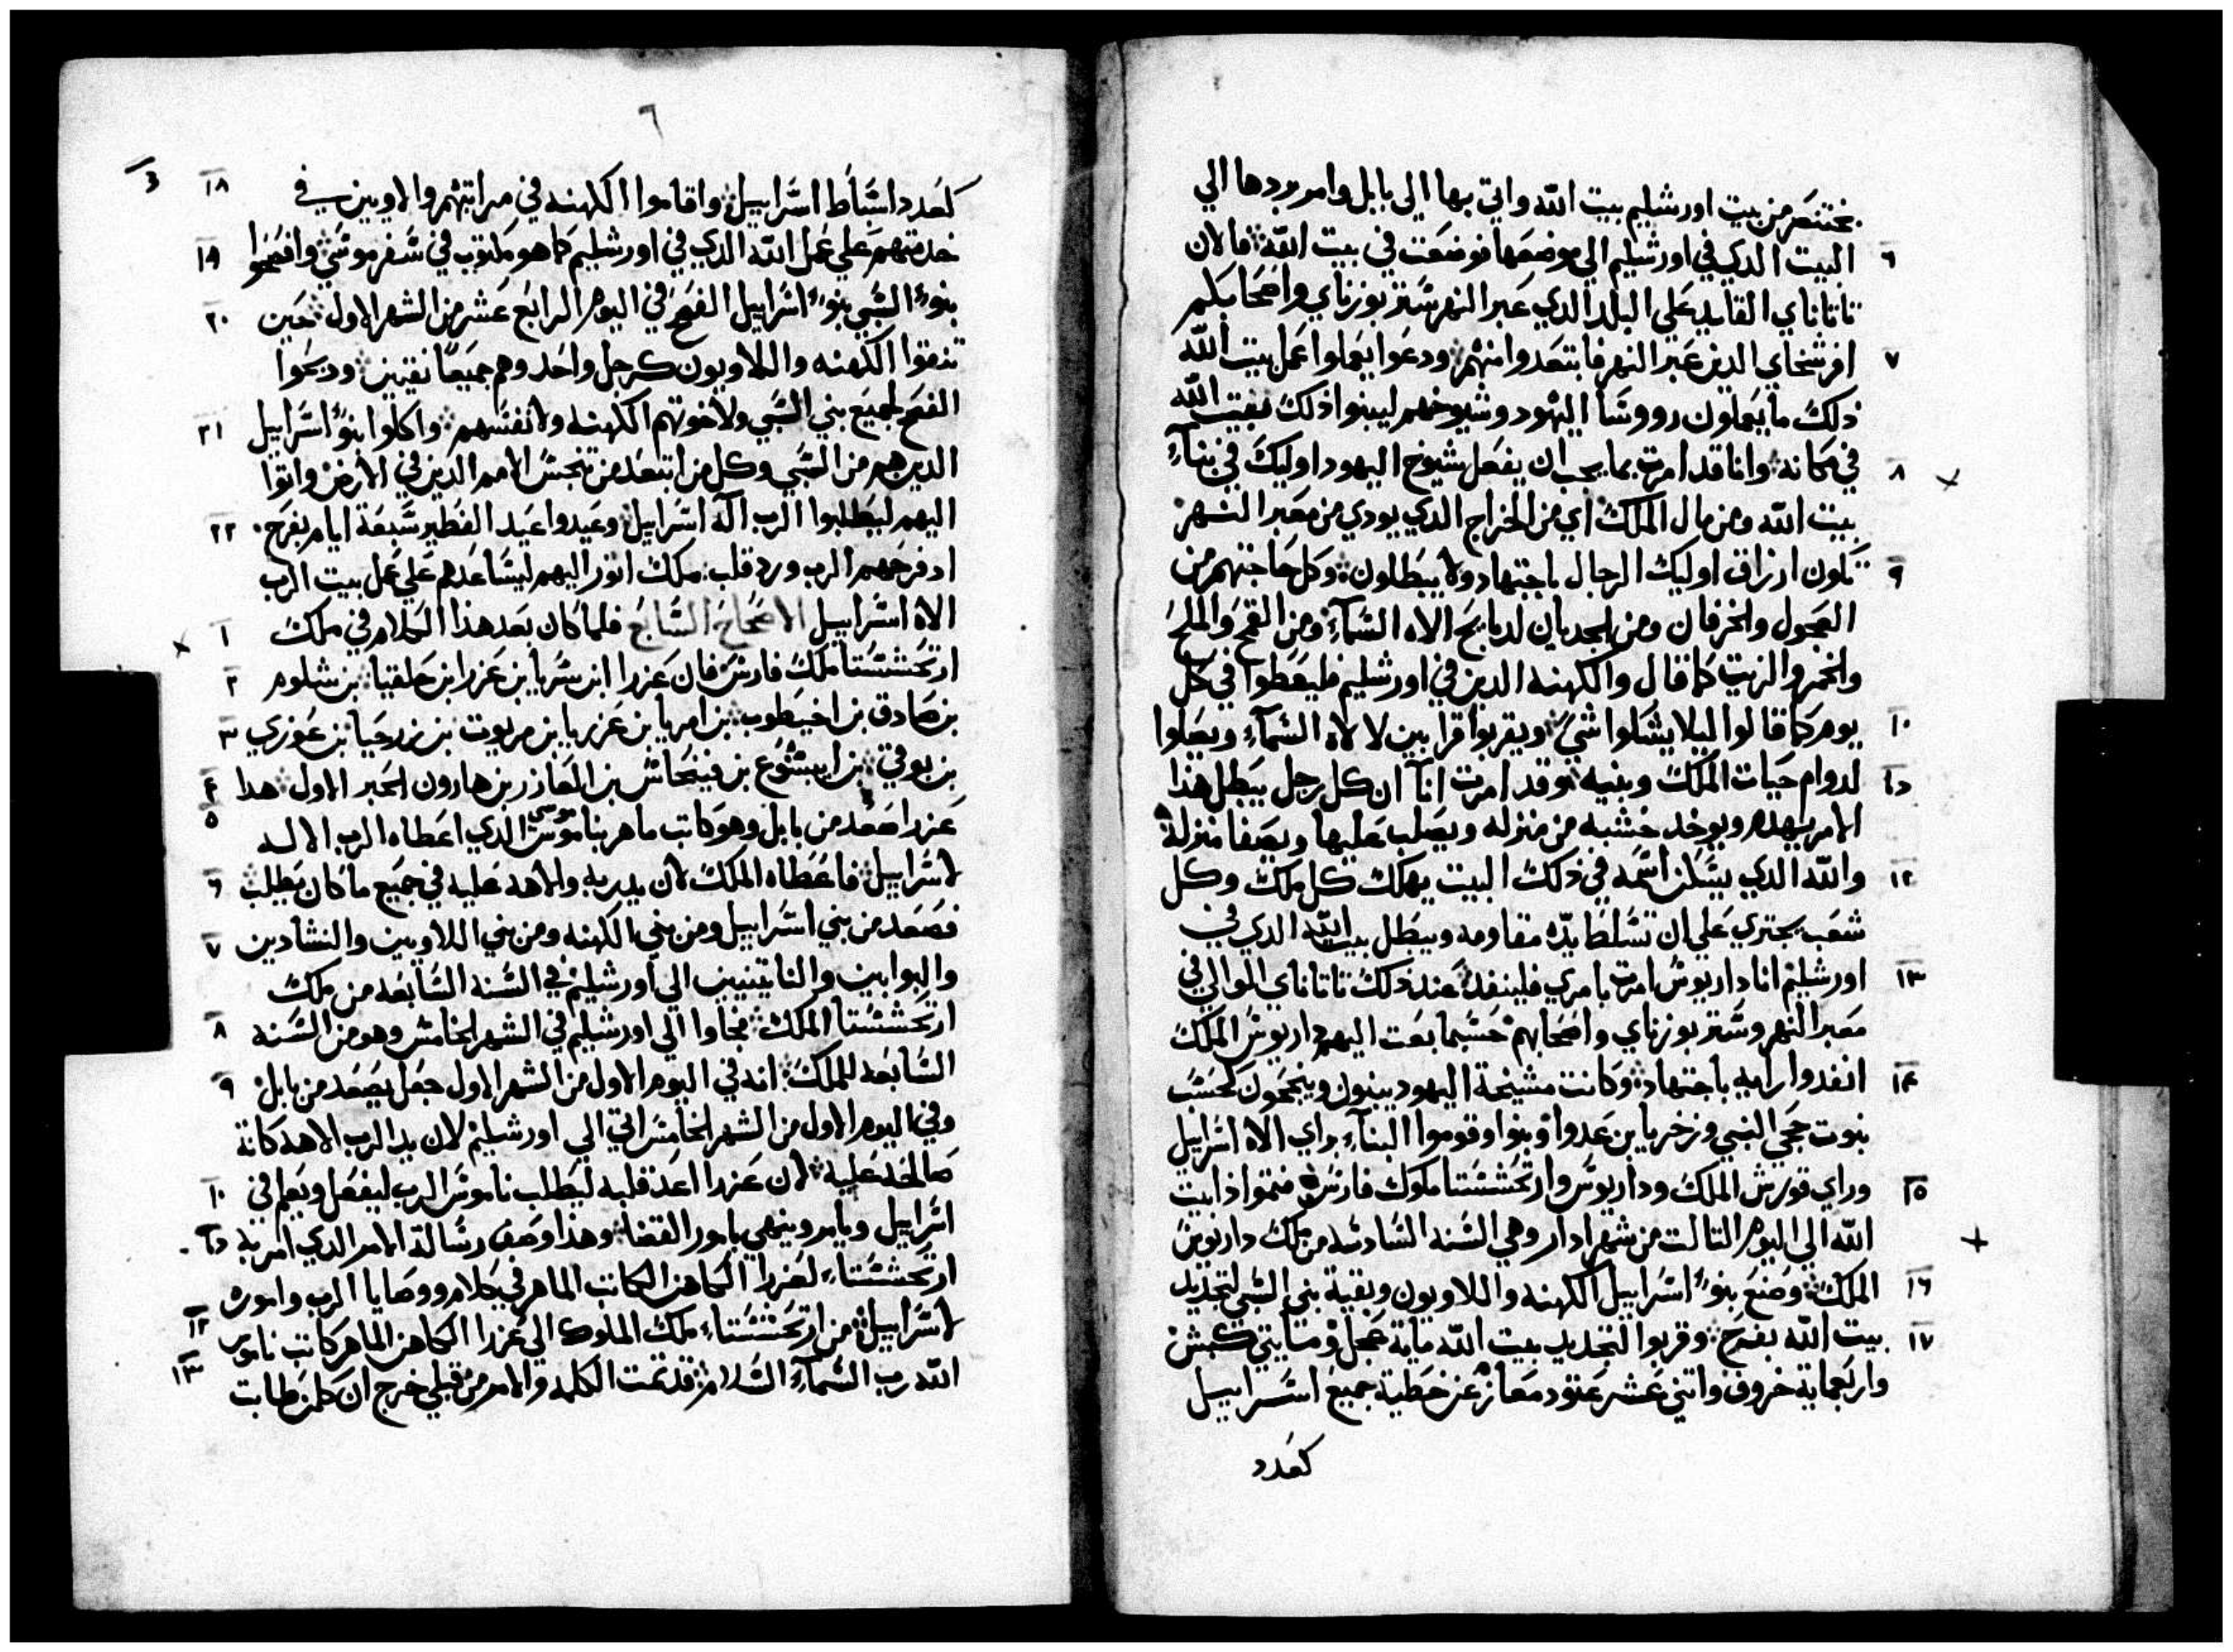 بختنصر من بيت اورشليم بيت الله واتي بها الي بابل وامر بردها الي
البيت الدي في اورشليم الي موضعها فوضعت في بيت الله فالان ٦
تاتاناي القايد علي البلد الدي عبر النهر شتر بوزناي واصحابكم
افرشخاي الدين عبر النهر فابتعدوا منهم ودعوا يعملوا عمل بيت الله ٧
ذلك ما يعملون رووسا اليهود وشيوخهم ليبنوا ذلك بيت الله
في مكانه وانا قد امرت بما يجب ان يفعل شيوخ اليهود اوليك في بناء ٨
بيت الله ومن مال الملك اي من الخراج الدي يودي من معبر النهر
تكون ارزاق اوليك الرجال باجتهاد ولا يبطلون وكل حاجتهم من ٩
العجول والخرفان ومن الجديان لدبايح الاه السماء ومن القمح والملح
والخمر والزيت كما قال والكهنه الدين في اورشليم فليعطوا في كل
يوم كما قالوا ليلا يشكوا شي ويقربوا قرابين لالاه السماء ويصلوا ١٠
لدوام حيات الملك وبنيه وقد امرت انا ان كل رجل يبطل هذا
الامر يهدم ويوخد خشبه من منزله ويصلب عليها ويصفا منزله
والله الدي يسكن اسمه في ذلك البيت يهلك كل ملك وكل ١٢
شعب يجتري علي ان تسلط يده مقاومه ويبطل بيت الله الدي في
اورشليم انا داريوس امرت بامري فلينفد عند ذلك تاتاناي الوالي في ١٣
معبر النهر وشتر بوزناي واصحابهم حسبما بعت اليهم داريوس الملك
انفدوا رايه باجتهاد وكانت مشيخة اليهود يبنون وينجحون كحسب ١٤
بنوت حجي النبي وزخريا بن عدوا وبنوا وقوموا البناء براي الاه اسراييل
وراي قورش الملك وداريوس وارتحششتا ملوك فارس فتمموا ذا بيت ١٥
الله الي اليوم التالت من شهر ادار وهي السنه السادسه من ملك داريوس
الملك وصنع بنو اسراييل الكهنه واللاويون وبقية بني السبي لتجديد ١٦
بيت الله بفرح وقربوا لتجديد بيت الله ماية عجل ومايتي كبش ١٧
واربعماية خروف واتني عشر عتود معاز عن خطية جميع اسراييل
كعدد
٦
كعدد اسباط اسراييل واقاموا الكهنه في مراتبهم والاويين في ١٨
خدمتهم علي عمل الله الدي في اورشليم كما هو مكتوب في سفر موسي وافصحوا ١٩
بنو السبي بنو اسراييل الفصح في اليوم الرابع عشر من الشهر الاول حين ٢٠
تنقوا الكهنه واللاويون كرجل واحد وهم جميعا نقيين ودبحوا
الفصح لجميع بني السبي ولاخوتهم الكهنه ولانفسهم واكلوا بنو اسراييل ٢١
الدين هم من السبي وكل من ابتعد من تنجس الامم الدين في الارض واتوا
اليهم ليطلبوا الرب اله اسراييل وعيدوا عيد الفطير سبعة ايام بفرح ٢٢
اد فرحهم الرب ورد قلب ملك اتور اليهم ليساعدهم علي عمل بيت الرب
الاه اسراييل الاصحاح السابع فلما كان بعد هذا الكلام في ملك ١
ارتحششتا ملك فارس فان عزرا ابن سريا بن عزرا بن حلقيا بن شلوم ٢
بن صادق بن اخيطوب بن امريا بن عزريا بن مريوت بن زرحيا بن عوزي ٣
بن بوقي بن ابيشوع بن فينحاس بن العازر بن هارون الحبر الاول هدا ٤
عزرا صعد من بابل وهو كاتب ماهر بناموس موسي الدي اعطاه الرب الاله ٥
لاسراييل فاعطاه الملك لان يد ربه والاهه عليه في جميع ما كان يطلب ٦
فصعد من بني اسراييل ومن بني الكهنه ومن بني اللاويين والنشادين ٧
والبوابين والناتينيين الي اورشليم في السنه السابعه من ملك
ارتحششتا الملك فجاوا الي اورشليم في الشهر الخامس وهو من السنه ٨
السابعه للملك انه في اليوم الاول من الشهر الاول جعل يصعد من بابل ٩
وفي اليوم الاول من الشهر الخامس اتي الي اورشليم لان يد الرب الاهه كانة
صالحه عليه لان عزرا اعد قلبه ليطلب ناموس الرب ليفعل ويعلم في ١٠
اسراييل ويامر وينهي بامور القضا وهذا وصف رسالة الامر الدي امر به
ارتحششتا لعزرا الكاهن الكاتب الماهر في كلام ووصايا الرب واموره
لاسراييل من ارتحششتا ملك الملوك الي عزرا الكاهن الماهر كاتب ناموس ١٢
الله رب السماء السلام قد تمت الكلمه والامر من قبلي خرج ان كلمن طابت ١٣